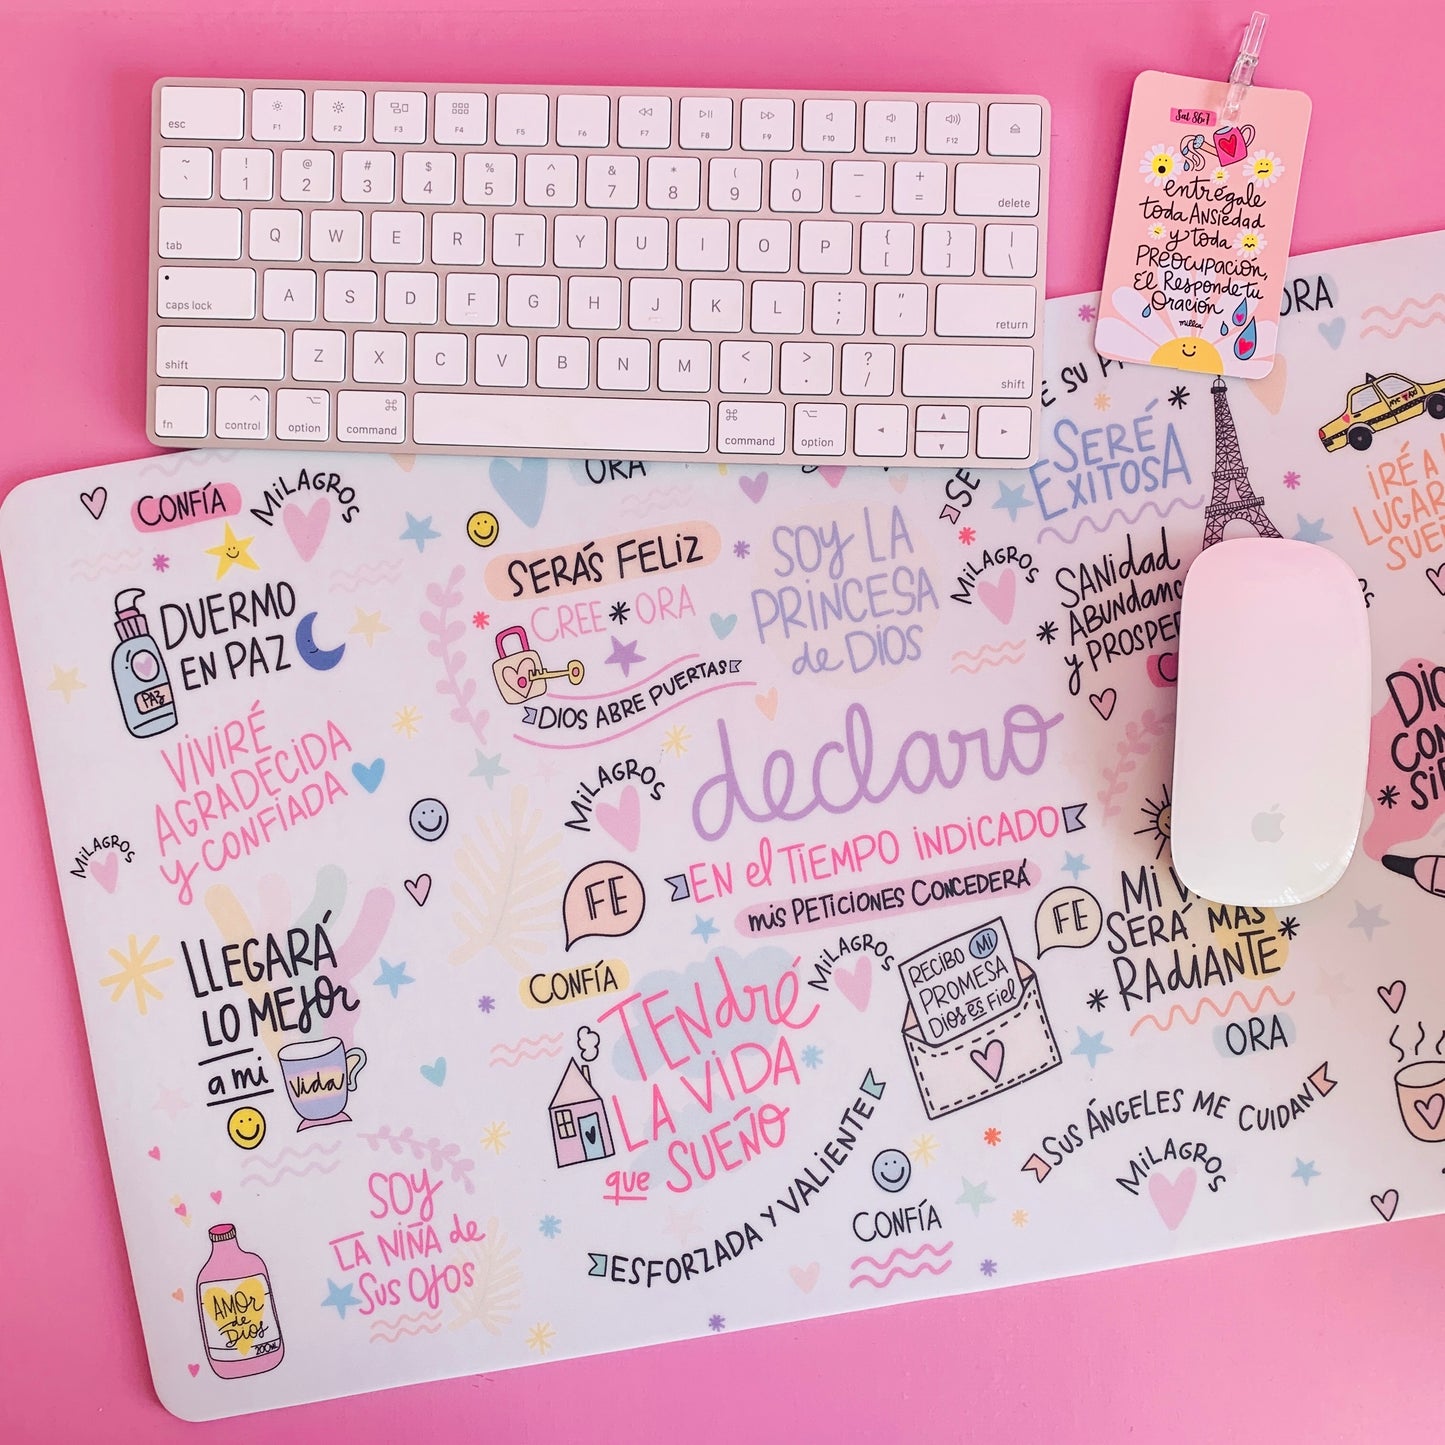 esc F1 F2 F3 F4 F5 F6 F7 F8 F9 F10 F11 F12
~ ` ! 1 @ 2 # 3 $ 4 % 5 ^ 6 & 7 * 8 ( 9 ) 0 — - + = delete
tab Q W E R T Y U I O P { [ } ] | \
caps lock A S D F G H J K L : ; " ' return
shift Z X C V B N M < , > . ? / shift
fn control option command command option
Sal 86:7
entrégale
toda ANSiedad
y toda
PREOCUPACIÓN,
ÉL RESPONDE tu
ORACIÓN
milca
ORA
E SU P
SERÉ
EXITOSA
NYC TAXI
IRÉ A
LUGAR
SUE
CONFÍA
MILAGROS
ORA
SE
DUERMO
EN PAZ
PAZ
SERÁS FELIZ
CREE * ORA
DIOS ABRE PUERTAS
SOY LA
PRINCESA
de DIOS
MILAGROS
SANidad
ABUNdANC
y PROSPE
C
VIVIRÉ
AGRADECIDA
y CONFIADA
MILAGROS
MILAGROS
declaro
EN el TIEMPO INDICADO
mis PETICIONES CONCEDERÁ
DIO
CON
SI
FE
FE
MI V
SERÁ MÁS
RADIANTE
ORA
LLEGARÁ
LO MEJOR
a mi
Vida
CONFÍA
TENdRÉ
LA VIDA
que SUEÑO
MILAGROS
RECIBO MI
PROMESA
DIOS es FIEL
SUS ÁNGELES ME CUIDAN
MILAGROS
ESFORZADA Y VALIENTE
CONFÍA
SOY
LA NIÑA de
SUS OJOS
AMOR
de
DIOS
200ml